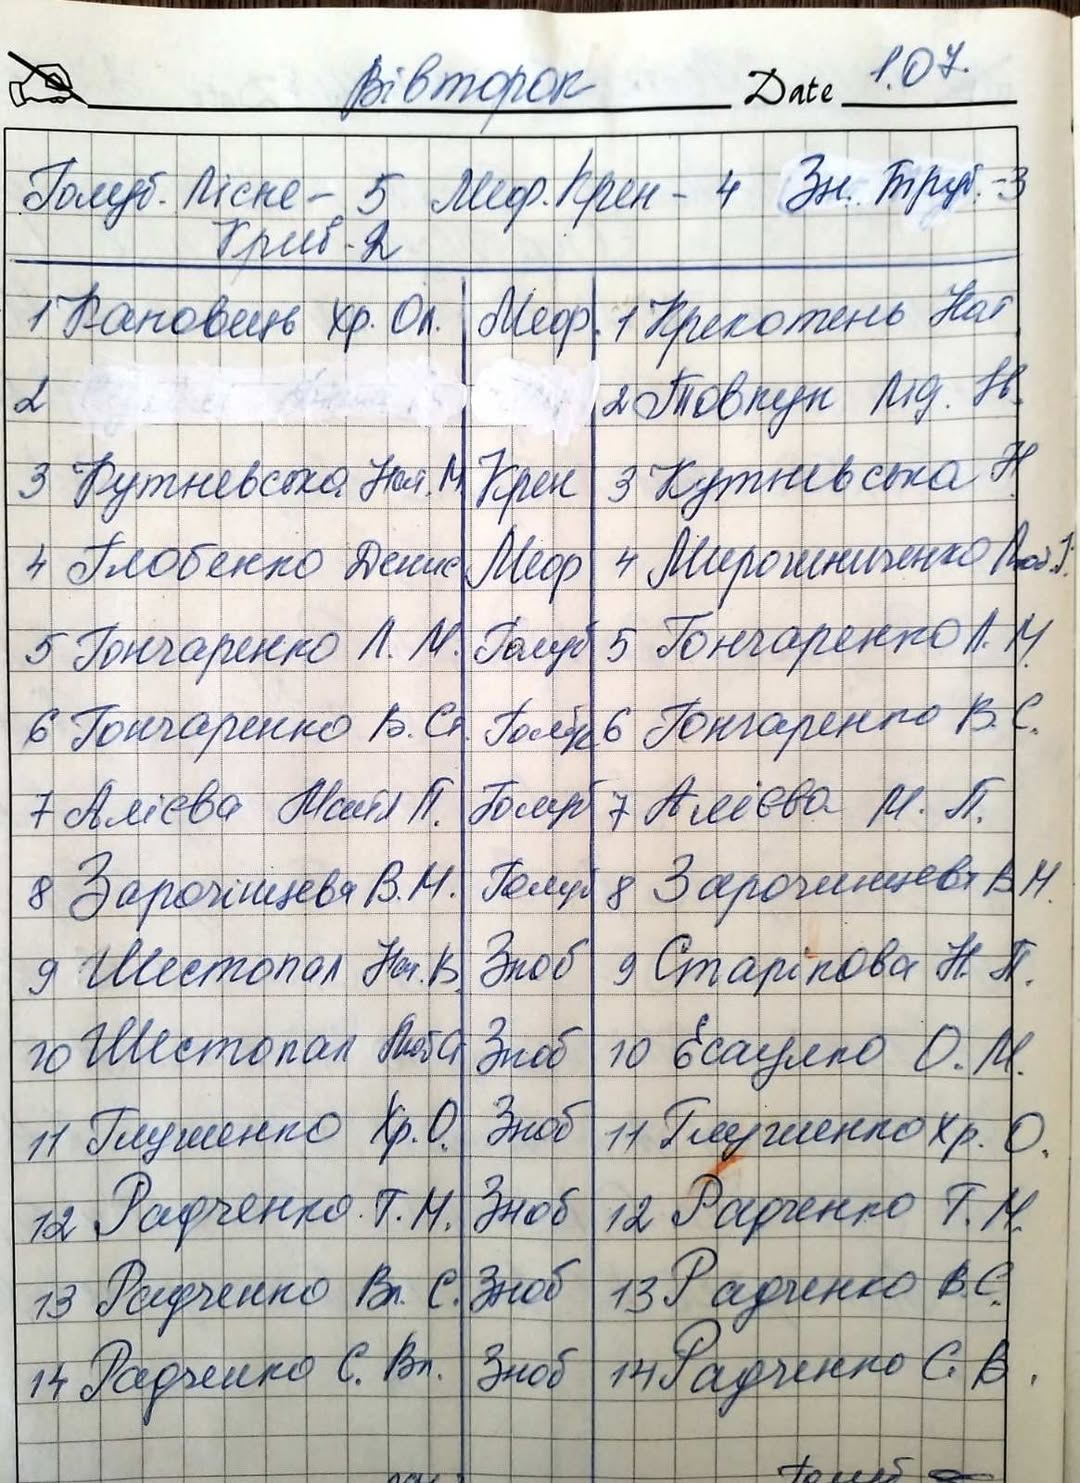 Вівторок Date 1.07.
Голуб. Лісне - 5 Меф. Крен - 4 Зн. Труб. - 3
Криб - 2
1 Кановець Хр. Ол. Меф. 1 Крекотень Нат
2 2 Товкун Лід. Н.
3 Кутневська Нат. М Крен 3 Кутневська Н
4 Глобенко Денис Меф 4 Мирошниченко Люб. Г.
5 Гончаренко Л. М. Голуб 5 Гончаренко Л. М
6 Гончаренко В. Ст. Голуб 6 Гончаренко В. С.
7 Алієва П. Голуб 7 Алієва М. П.
8 Зарочінцева В. М. Голуб 8 Зарочинцева В М.
9 Шестопал Нат. В Зноб 9 Старікова Н. П.
10 Шестопал Люб Ст Зноб 10 Єсаулко О. М.
11 Глушенко Хр. О. Зноб 11 Глушенко Хр. О.
12 Радченко Т. М. Зноб 12 Радченко Т. М.
13 Радченко Вл. С. Зноб 13 Радченко В. С.
14 Радченко С. Вл. Зноб 14 Радченко С. В.
Голуб